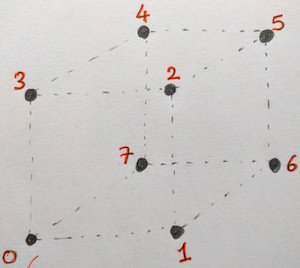 4 5
3 2
7 6
0 1